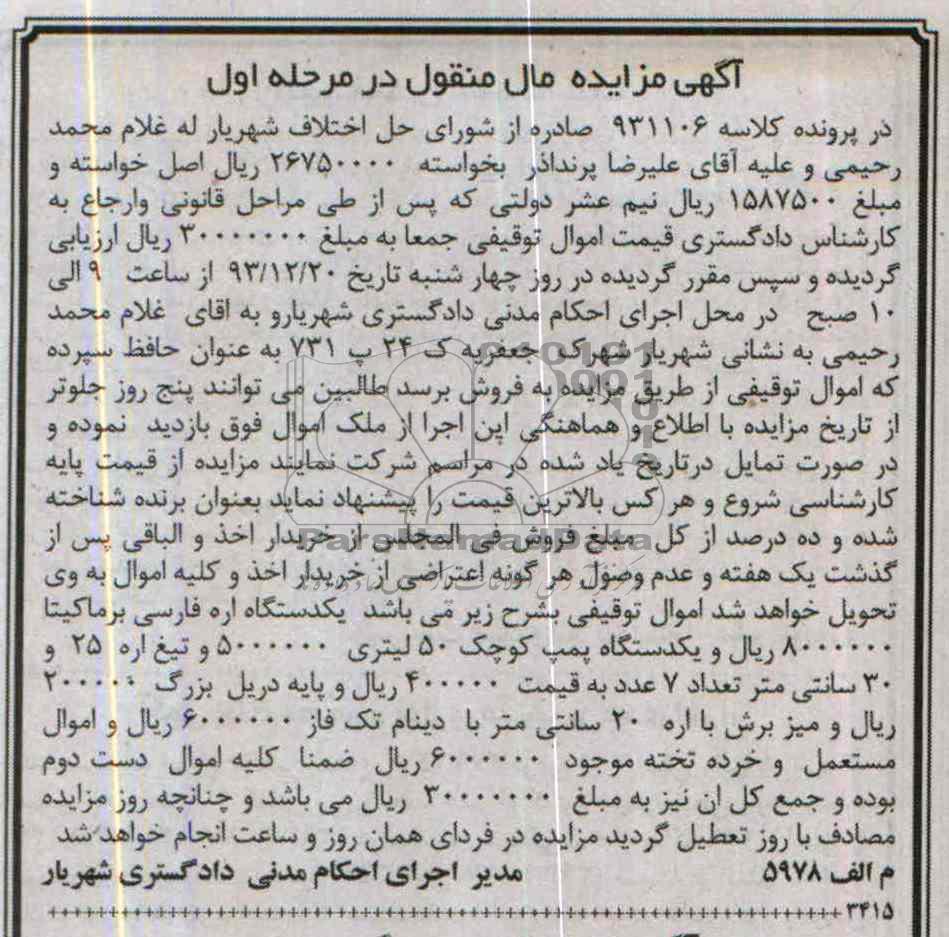 آگهی مزایده مال منقول در مرحله اول
در پرونده کلاسه ۹۳۱۱۰۶ صادره از شورای حل اختلاف شهریار له غلام محمد
رحیمی و علیه آقای علیرضا پرنداذر بخواسته ۲۶۷۵۰۰۰۰ ریال اصل خواسته و
مبلغ ۱۵۸۷۵۰۰ ریال نیم عشر دولتی که پس از طی مراحل قانونی وارجاع به
کارشناس دادگستری قیمت اموال توقیفی جمعا به مبلغ ۳۰۰۰۰۰۰۰ ریال ارزیابی
گردیده و سپس مقرر گردیده در روز چهار شنبه تاریخ ۹۳/۱۲/۲۰ از ساعت ۹ الی
۱۰ صبح در محل اجرای احکام مدنی دادگستری شهریارو به اقای غلام محمد
رحیمی به نشانی شهریار شهرک جعفریه ک ۲۴ پ ۷۳۱ به عنوان حافظ سپرده
که اموال توقیفی از طریق مزایده به فروش برسد طالبین می توانند پنج روز جلوتر
از تاریخ مزایده با اطلاع و هماهنگی این اجرا از ملک اموال فوق بازدید نموده و
در صورت تمایل درتاریخ یاد شده در مراسم شرکت نمایند مزایده از قیمت پایه
کارشناسی شروع و هر کس بالاترین قیمت را پیشنهاد نماید بعنوان برنده شناخته
شده و ده درصد از کل مبلغ فروش فی المجلس از خریدار اخذ و الباقی پس از
ParsNamadData
گذشت یک هفته و عدم وصول هر گونه اعتراضی از خریدار اخذ و کلیه اموال به وی
تحویل خواهد شد اموال توقیفی بشرح زیر می باشد یکدستگاه اره فارسی برماکیتا
۸۰۰۰۰۰۰ ریال و یکدستگاه پمپ کوچک ۵۰ لیتری ۵۰۰۰۰۰۰ و تیغ اره ۲۵ و
۳۰ سانتی متر تعداد ۷ عدد به قیمت ۴۰۰۰۰۰ ریال و پایه دریل بزرگ ۲۰۰۰۰۰
ریال و میز برش با اره ۲۰ سانتی متر با دینام تک فاز ۶۰۰۰۰۰۰ ریال و اموال
مستعمل و خرده تخته موجود ۶۰۰۰۰۰۰ ریال ضمنا کلیه اموال دست دوم
بوده و جمع کل ان نیز به مبلغ ۳۰۰۰۰۰۰۰ ریال می باشد و چنانچه روز مزایده
مصادف با روز تعطیل گردید مزایده در فردای همان روز و ساعت انجام خواهد شد
م الف ۵۹۷۸ مدیر اجرای احکام مدنی دادگستری شهریار
۳۴۱۵